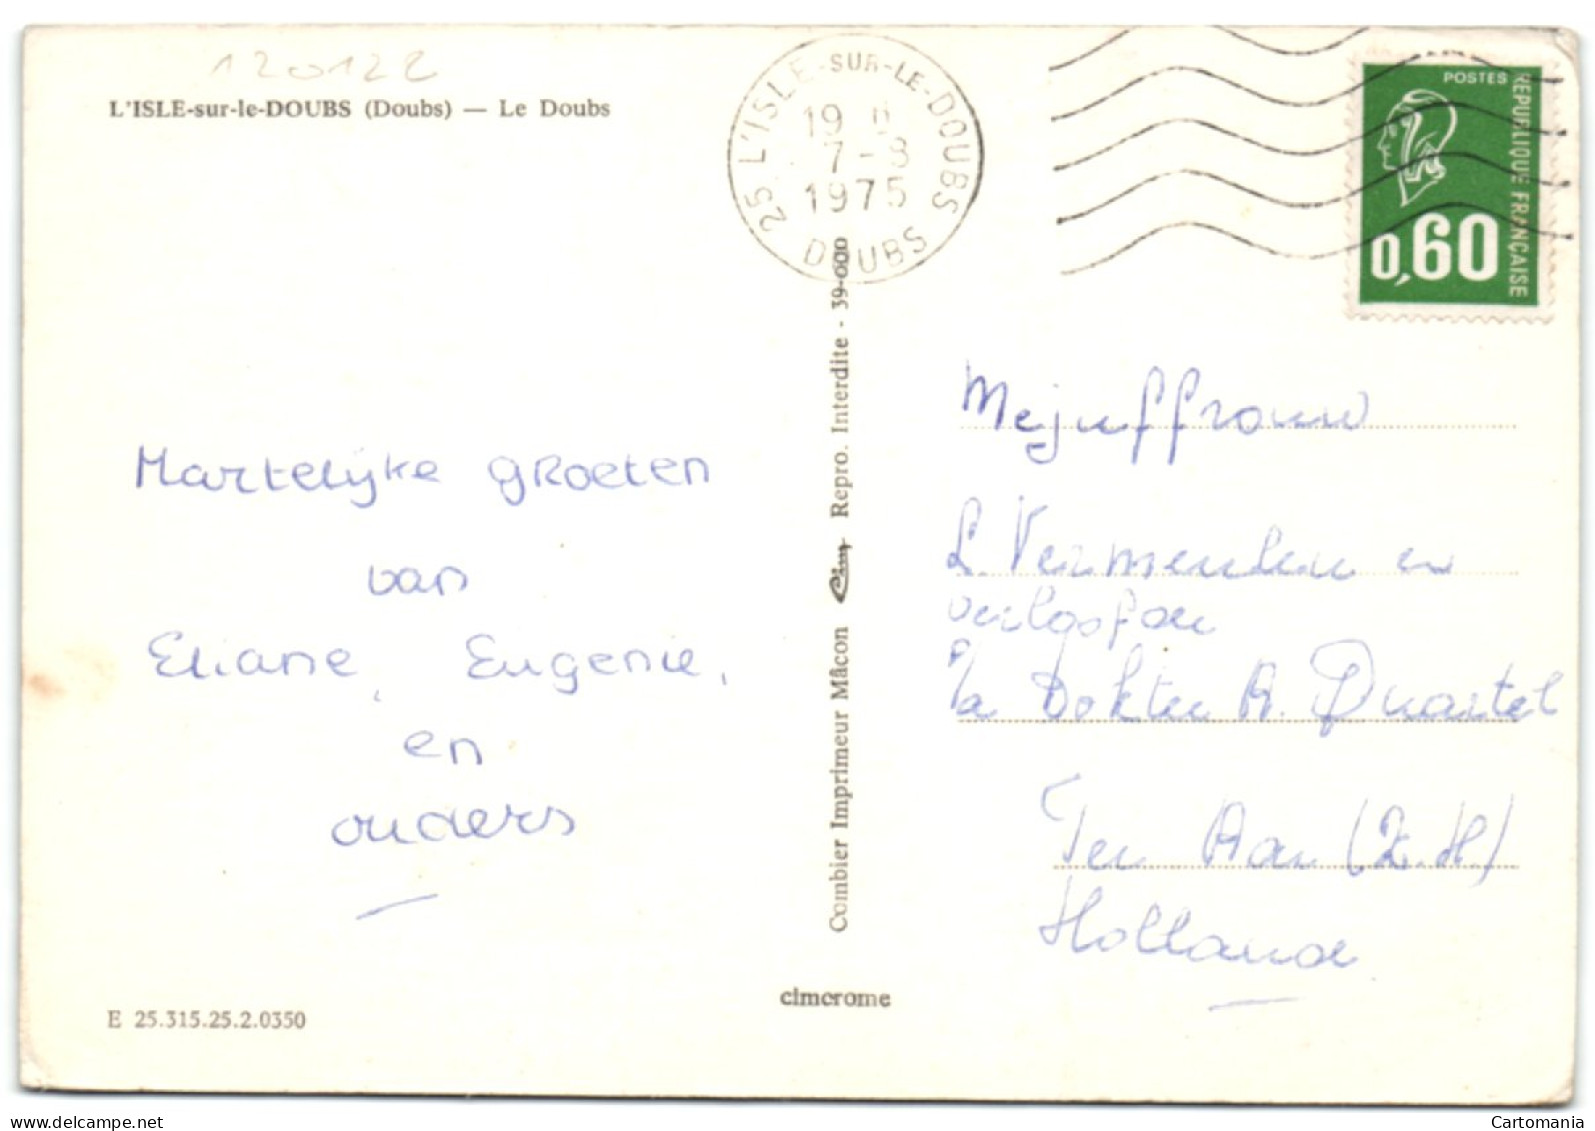 120122
L'ISLE-sur-le-DOUBS (Doubs) — Le Doubs
25 L'ISLE-SUR-LE-DOUBS
19 H
7-8
1975
DOUBS
POSTES
REPUBLIQUE FRANÇAISE
0,60
Hartelijke groeten
van
Eliane, Eugenie,
en
ouders
Combier Imprimeur Mâcon Cim Repro. Interdite - 39-000
Mejuffrouw
L. Vermeulen en
verloofde
p/a Dokter A.
Ter Aar (Z.H.)
Holland
cimcrome
E 25.315.25.2.0350
Cartomania